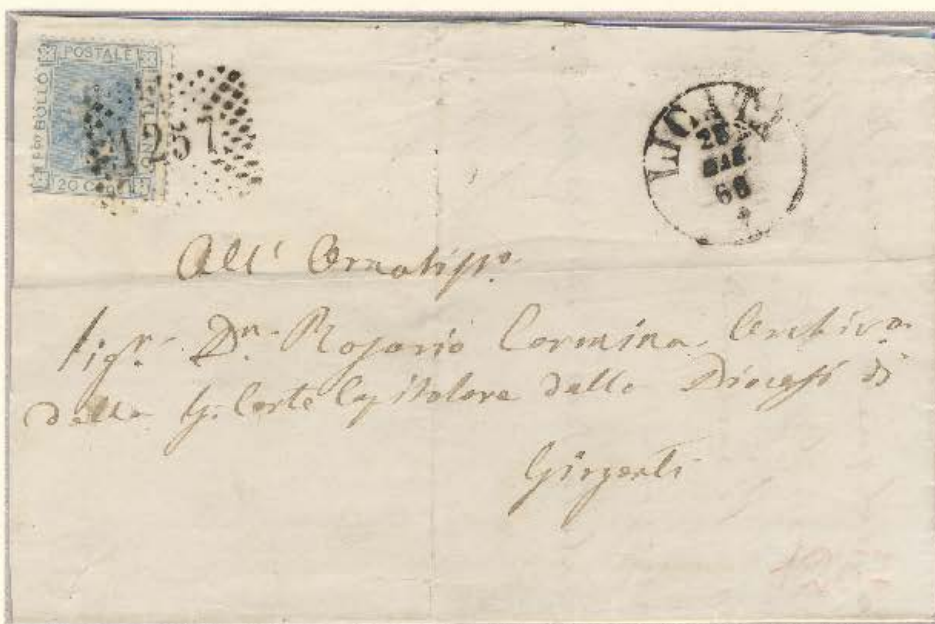 POSTALE
FRCO BOLLO
20 C
1257
LICATA
MAR
68
All' Ornatissº
Sigr. Dn. Rosario Cormina Archivo
della G. Corte Capitolare della Diocesi di
Girgenti